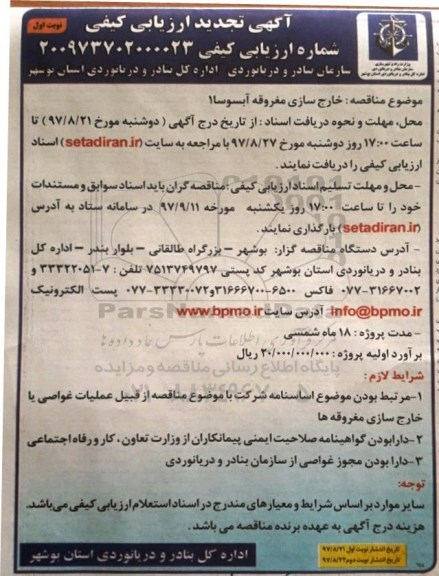 آگهی تجدید ارزیابی کیفی
نوبت اول
شماره ارزیابی کیفی ۲۰۰۹۷۳۷۰۲۰۰۰۰۲۳
سازمان بنادر و دریانوردی  اداره کل بنادر و دریانوردی استان بوشهر
موضوع مناقصه : خارج سازی مغروقه آبسوسا۱
محل، مهلت و نحوه دریافت اسناد : از تاریخ درج آگهی ( دوشنبه مورخ ۹۷/۸/۲۱) تا
ساعت ۱۷:۰۰ روز دوشنبه مورخ ۹۷/۸/۲۷ با مراجعه به سایت (setadiran.ir) اسناد
ارزیابی کیفی را دریافت نمایند.
-محل و مهلت تسلیم اسناد ارزیابی کیفی : مناقصه گران باید اسناد سوابق و مستندات
خود را تا ساعت ۱۷:۰۰ روز یکشنبه مورخه ۹۷/۹/۱۱ در سامانه ستاد به آدرس
(setadiran.ir) بارگذاری نمایند.
- آدرس دستگاه مناقصه گزار: بوشهر – بزرگراه طالقانی – بلوار بندر – اداره کل
بنادر و دریانوردی استان بوشهر کد پستی ۷۵۱۳۷۴۹۷۹۷ تلفن : ۷-۳۳۳۲۲۰۵۱ و
۰۷۷-۳۱۶۶۷۰۰۲ فاکس ۶۵۰۰-۳۱۶۶۷۰۰۰و۳۳۳۳۰۰۷۲-۰۷۷ پست الکترونیک
info@bpmo.ir آدرس سایت www.bpmo.ir
- مدت پروژه : ۱۸ ماه شمسی
برآورد اولیه پروژه : ۳۰/۰۰۰/۰۰۰/۰۰۰ ریال
شرایط لازم :
۱-مرتبط بودن موضوع اساسنامه شرکت با موضوع مناقصه از قبیل عملیات غواصی یا
خارج سازی مغروقه ها
۲-دارابودن گواهینامه صلاحیت ایمنی پیمانکاران از وزارت تعاون ، کار و رفاه اجتماعی
۳-دارا بودن مجوز غواصی از سازمان بنادر و دریانوردی
توجه:
سایر موارد بر اساس شرایط و معیارهای مندرج در اسناد استعلام ارزیابی کیفی می‌باشد.
هزینه درج آگهی به عهده برنده مناقصه می باشد .
تاریخ انتشار نوبت اول ۹۷/۸/۲۱
تاریخ انتشار نوبت دوم ۹۷/۸/۲۲
اداره کل بنادر و دریانوردی استان بوشهر